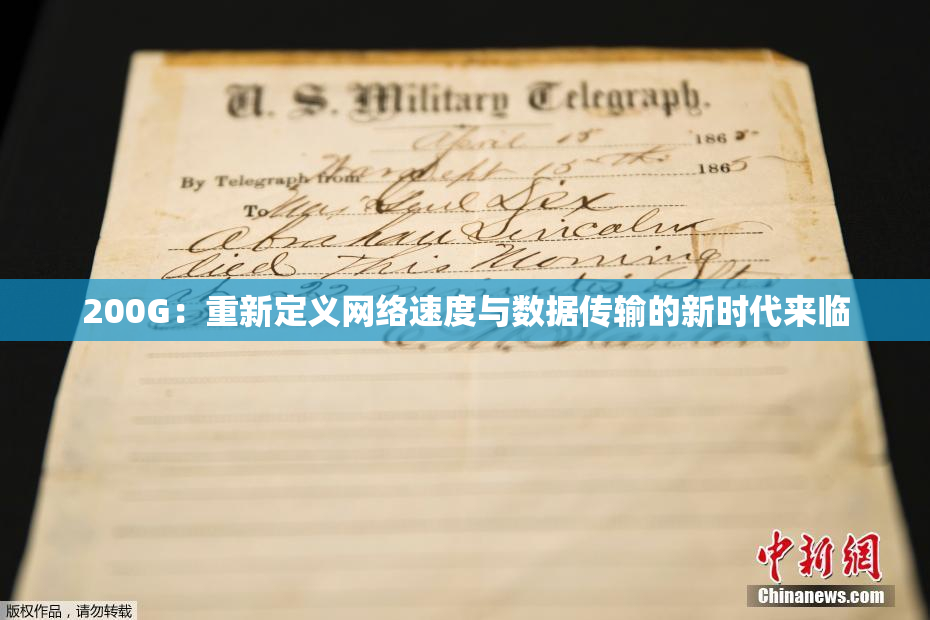 U. S. Military Telegraph.
April 15 1865
By Telegraph from War Dept 15th 1865
To Maj Genl Dix
Abraham Lincoln
died This Morning
22 minutes after
200G：重新定义网络速度与数据传输的新时代来临
Stanton
中新网
Chinanews.com
版权作品，请勿转载